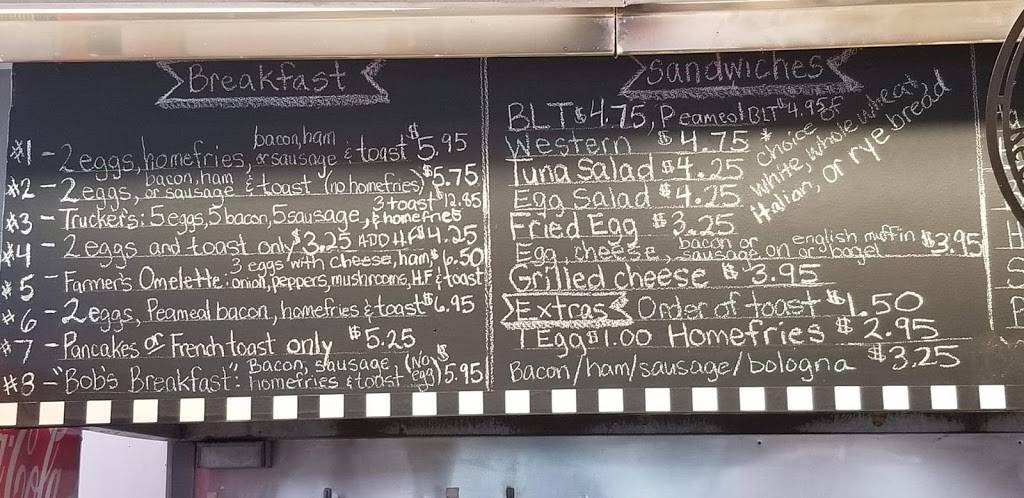 Breakfast
bacon, ham
#1 - 2 eggs, homefries, or sausage & toast $5.95
bacon, ham
#2 - 2 eggs, or sausage & toast (no homefries) $5.75
3 toast $12.85
#3 - Truckers: 5 eggs, 5 bacon, 5 sausage, & homefries
#4 - 2 eggs and toast only $3.25 ADD H.F $4.25
3 eggs with cheese, ham, $6.50
#5 - Farmer's Omelette: onion, peppers, mushrooms, H.F & toast
#6 - 2 eggs, Peameal bacon, homefries & toast $6.95
#7 - Pancakes or French toast only $5.25
Bacon, sausage (No
#8 - "Bob's Breakfast": homefries & toast egg) $5.95
Sandwiches
BLT $4.75, Peameal BLT $4.95
Western $4.75
Tuna Salad $4.25
Egg Salad $4.25
Fried Egg $3.25
* choice of
white, whole wheat,
Italian, or rye bread
bacon or english muffin
Egg, cheese, sausage on or bagel $3.95
Grilled cheese $3.95
Extras Order of toast $1.50
1 Egg $1.00 Homefries $2.95
Bacon/ham/sausage/bologna $3.25